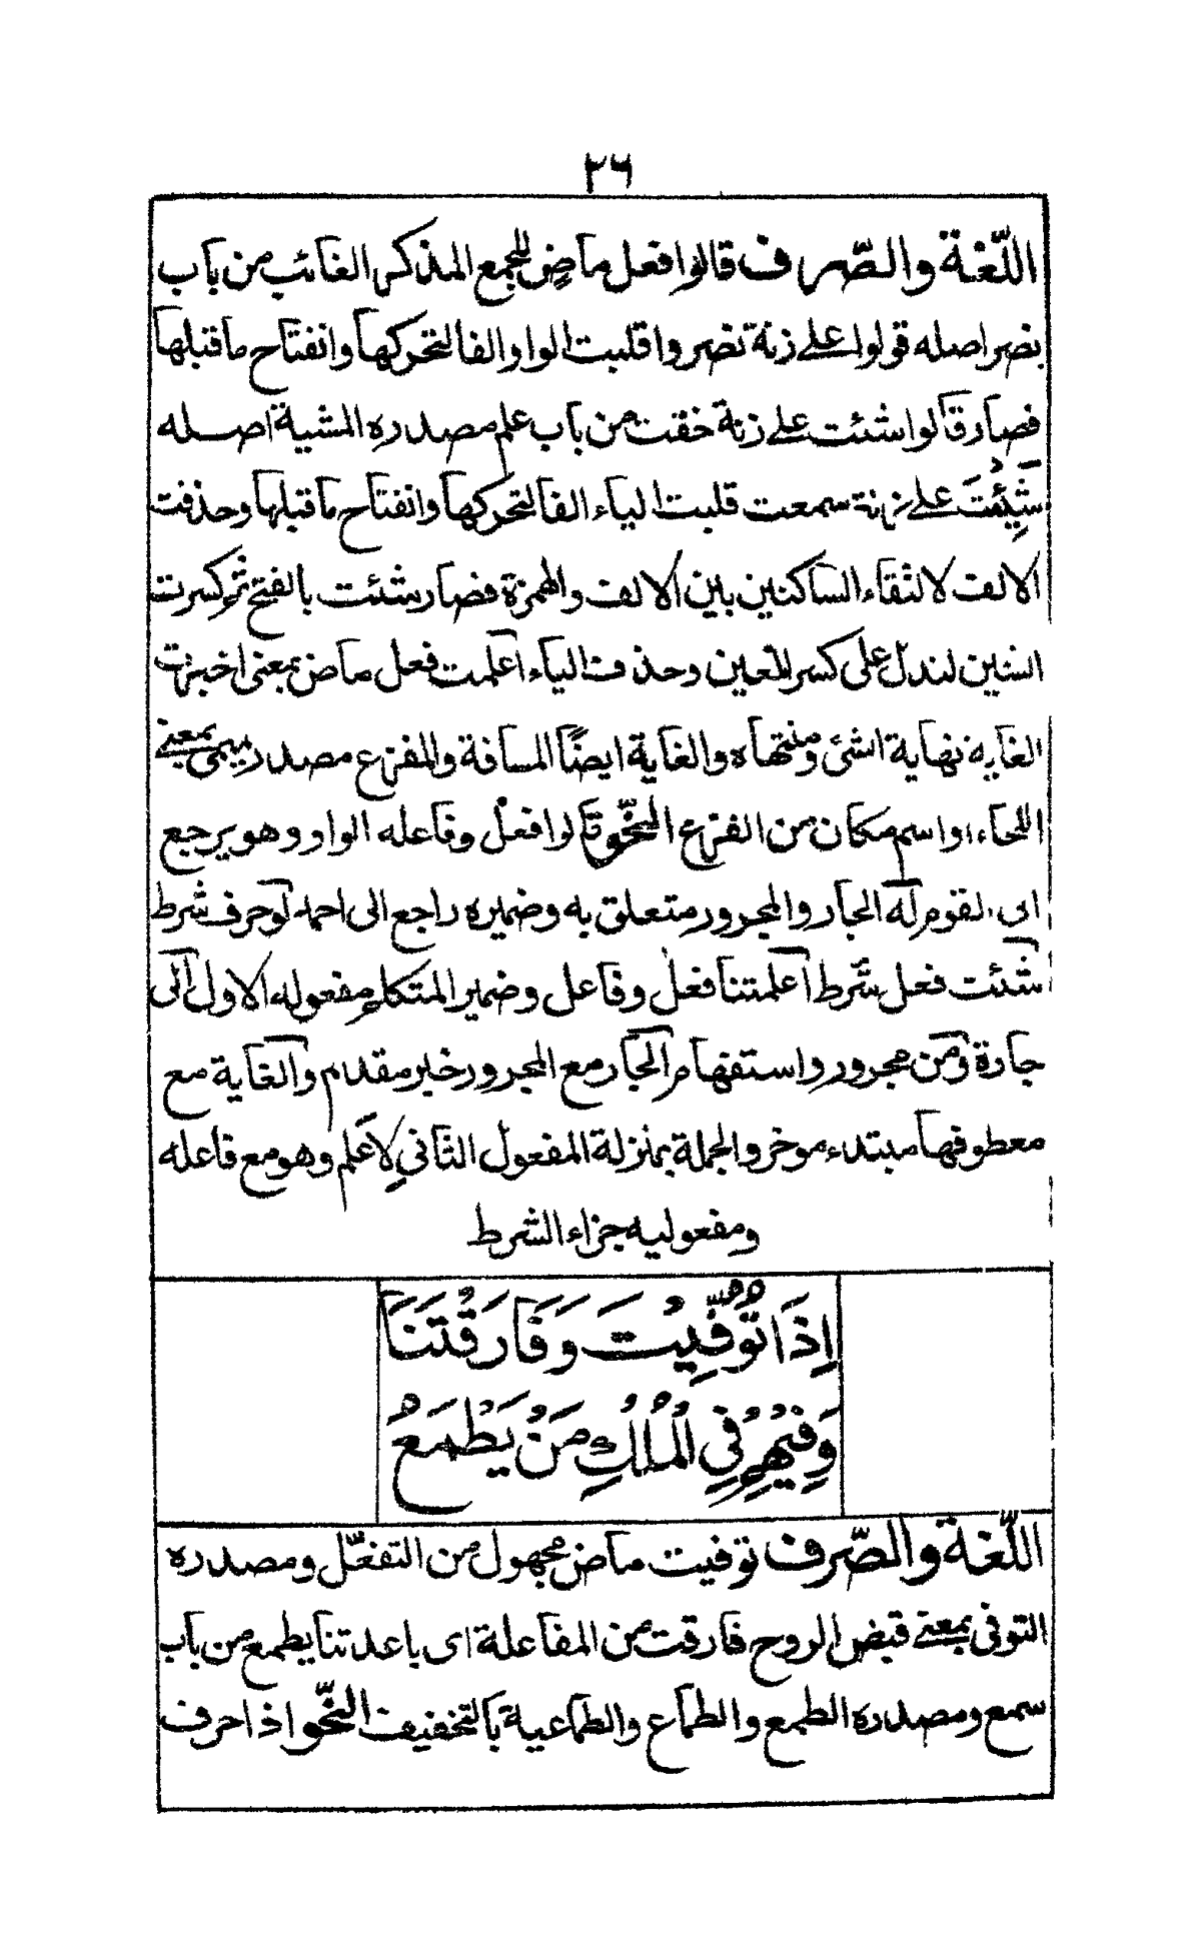 ٢٦
اللّغة والصّرف قالوا فعل ماضٍ للجمع المذكر الغائب من باب
نصر اصله قولوا على زنة نصروا قلبت الواو الفا لتحركها وانفتاح ما قبلها
فصار قالوا شئت على زنة خفت من باب علم مصدره المشية اصله
شَيِئْتَ على زنة سمعت قلبت الياء الفا لتحركها وانفتاح ما قبلها وحذفت
الالف لالتقاء الساكنين بين الالف والهمزة فصار شئت بالفتح ثم كسرت
الشين لتدل على كسر العين وحذف الياء اعلمت فعل ماض بمعنى اخبرت
الغاية نهاية الشئ ومنتهاه والغاية ايضًا المسافة والمفزع مصدر ميمى بمعنے
اللجاء او اسم مكان من الفزع النّحو قالوا فعل وفاعله الواو وهو يرجع
اى القوم له الجار والمجرور متعلق به وضميره راجع الى احمد لو حرف شرط
شئت فعل شرط اعلمتنا فعل وفاعل وضمير المتكلم مفعوله الاول الى
جارة ومن مجرور واستفهام الجار مع المجرور خبر مقدم والغاية مع
معطوفها مبتدء موخر والجملة بمنزلة المفعول الثانى لاعلم وهو مع فاعله
ومفعوليه جزاء الشرط
اِذَا تُوُفِّيْتَ وَفَارَقْتَنَا
وَفِيْهِمْ فِى الْمُلْكِ مَنْ يَطْمَعُ
اللّغة والصّرف توفيت ماض مجهول من التفعّل ومصدره
التوفى بمعنے قبض الروح فارقت من المفاعلة اى باعدتنا يطمع من باب
سمع ومصدره الطمع والطماع والطماعية بالتخفيف النّحو اذا حرف